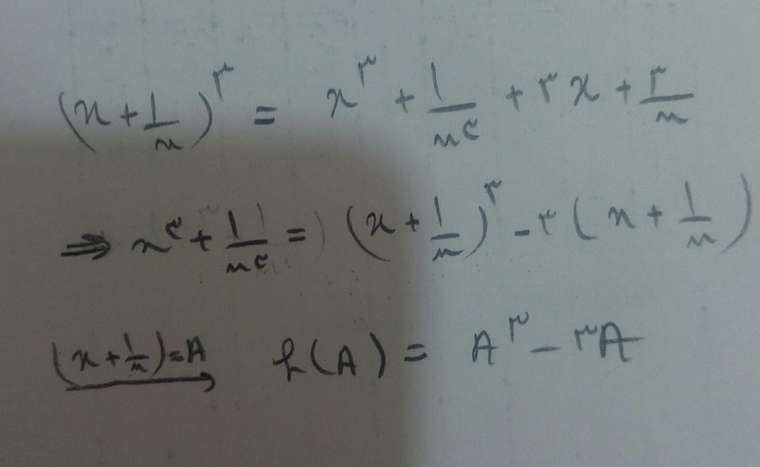 (x + 1/x)^۳ = x^۳ + 1/x^۳ + ۳x + ۳/x
⇒ x^۳ + 1/x^۳ = (x + 1/x)^۳ - ۳(x + 1/x)
(x + 1/x) = A → f(A) = A^۳ - ۳A